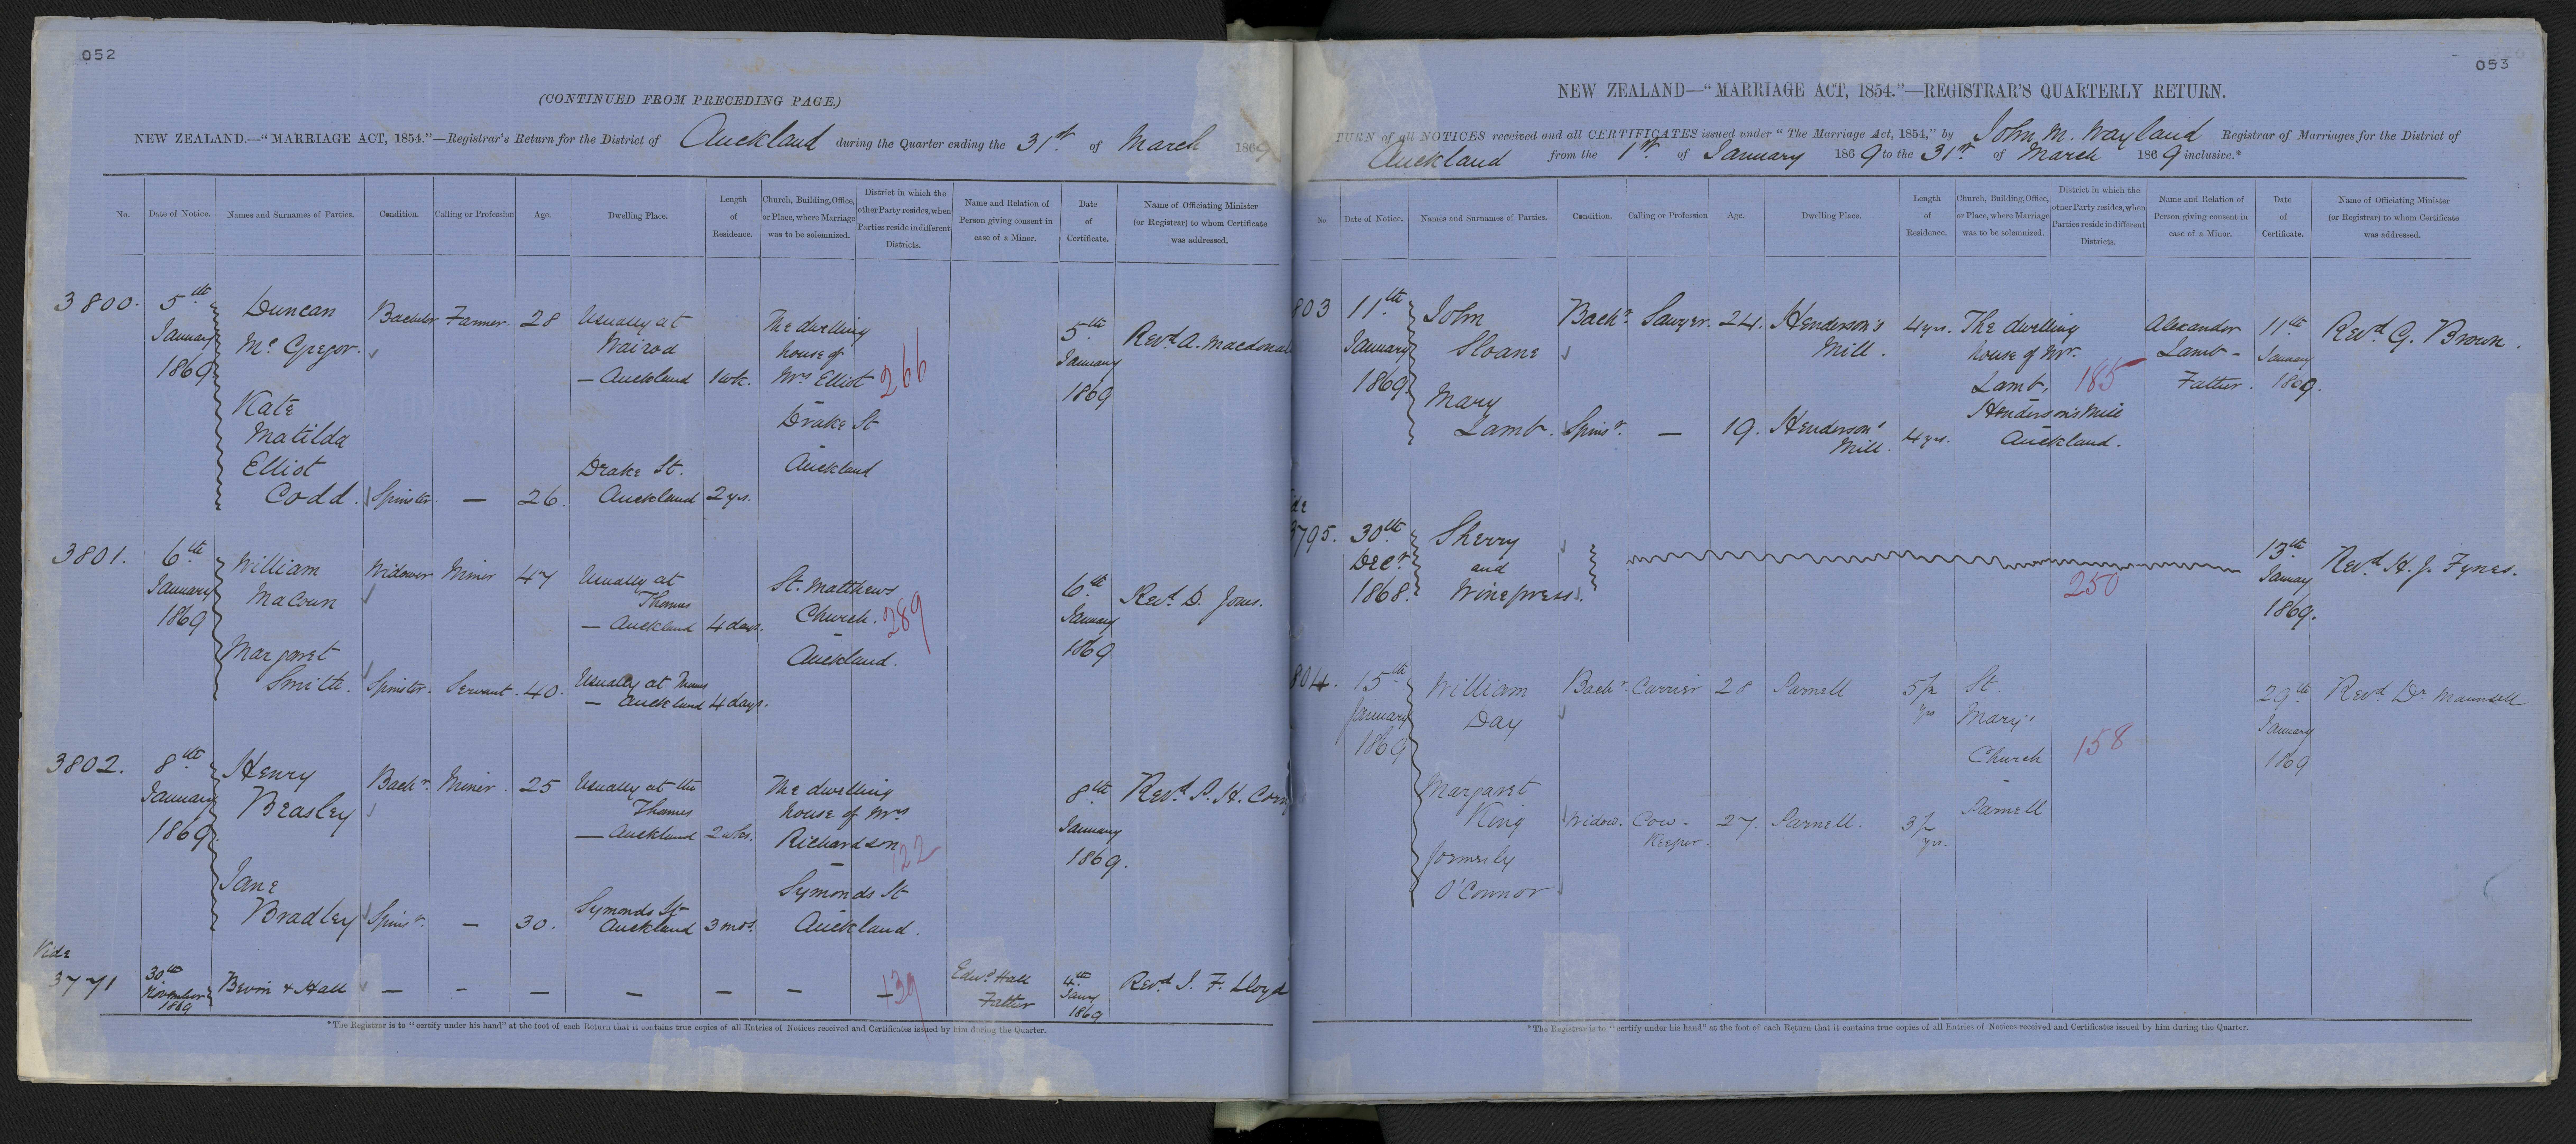 052
(CONTINUED FROM PRECEDING PAGE.)
NEW ZEALAND.—"MARRIAGE ACT, 1854."—Registrar's Return for the District of Auckland during the Quarter ending the 31st. of March 1869
No. Date of Notice. Names and Surnames of Parties. Condition. Calling or Profession Age. Dwelling Place. Length of Residence. Church, Building, Office, or Place, where Marriage was to be solemnized. District in which the other Party resides, when Parties reside in different Districts. Name and Relation of Person giving consent in case of a Minor. Date of Certificate. Name of Officiating Minister (or Registrar) to whom Certificate was addressed.
3800. 5th Duncan Bachelor Farmer. 28 Usually at The dwelling 5th Revd. A. Macdonal
January Mc Gregor. Wairoa house of January
1869 — Auckland 1 wk. Mrs Elliot 266 1869
Kate Drake St
Matilda
Elliot Drake St. Auckland
Codd. Spinster. — 26. Auckland 2 yrs.
3801. 6th William Widower Miner 47 Usually at St. Matthews 6th Revd. D. Jones.
January Macoun Thames Church. 289 January
1869 — Auckland 4 days. Auckland. 1869
Margaret
Smith. Spinster. Servant. 40. Usually at Thames
— Auckland 4 days.
3802. 8th Henry Bachr. Miner. 25 Usually at the The dwelling 8th Revd. P. H. Corn
January Beasley Thames house of Mrs January
1869. — Auckland 2 wks. Richardson 122 1869.
Jane Symonds St
Bradley Spinr. — 30. Symonds St Auckland 3 mos. Auckland.
Vide
3771 30th November 1869 Bevin & Hall — — — — — — — 139 Edwd. Hall Father 4th Jany 1869 Revd. J. F. Lloyd
* The Registrar is to "certify under his hand" at the foot of each Return that it contains true copies of all Entries of Notices received and Certificates issued by him during the Quarter.
053
NEW ZEALAND—"MARRIAGE ACT, 1854."—REGISTRAR'S QUARTERLY RETURN.
TURN of all NOTICES received and all CERTIFICATES issued under "The Marriage Act, 1854," by John M. Wayland Registrar of Marriages for the District of
Auckland from the 1st. of January 1869 to the 31st. of March 1869 inclusive.*
No. Date of Notice. Names and Surnames of Parties. Condition. Calling or Profession Age. Dwelling Place. Length of Residence. Church, Building, Office, or Place, where Marriage was to be solemnized. District in which the other Party resides, when Parties reside in different Districts. Name and Relation of Person giving consent in case of a Minor. Date of Certificate. Name of Officiating Minister (or Registrar) to whom Certificate was addressed.
803 11th John Bachr. Sawyer. 24. Henderson's 4 yrs. The dwelling Alexander 11th Revd. G. Brown.
January Sloane Mill. house of Mr. Lamb - January
1869. Lamb, 185 Father. 1869.
Mary Henderson's Mill
Lamb. Spinsr. — 19. Henderson's Mill. 4 yrs. Auckland.
de
3795. 30th Sherry 13th Revd. H. J. Fynes.
Decr. and January
1868. Winepress. 250 1869.
804. 15th William Bachr. Carrier 28 Parnell 5½ yrs St. 29th Revd. Dr Maunsell
January Day Mary's January
1869 Church 158 1869
Margaret Parnell
King Widow. Cow-Keeper. 27. Parnell. 3½ yrs.
formerly
O'Connor
* The Registrar is to "certify under his hand" at the foot of each Return that it contains true copies of all Entries of Notices received and Certificates issued by him during the Quarter.